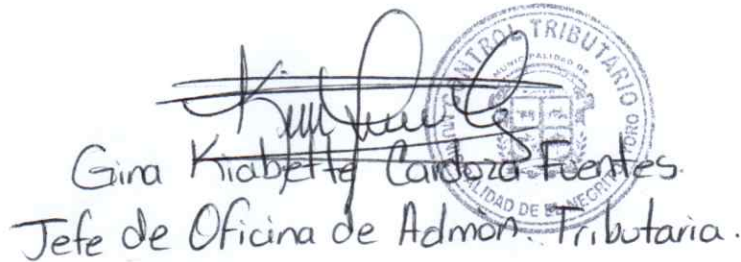 CONTROL TRIBUTARIO
MUNICIPALIDAD DE
MUNICIPALIDAD DE EL NEGRITO, YORO
Gina Kiabette Cardoza Fuentes.
Jefe de Oficina de Admon. Tributaria.